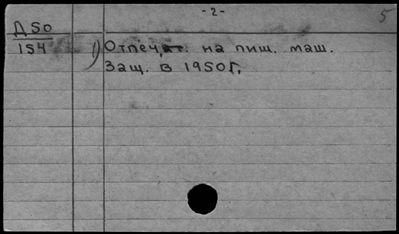 -2-
5
Д50
154
1) Отпечат. на пиш. маш.
Защ. в 1950г.